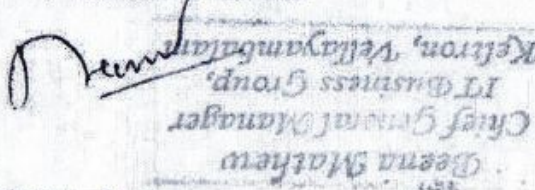 Beena Mathew
Chief General Manager
IT Business Group,
Keltron, Vellayambalam